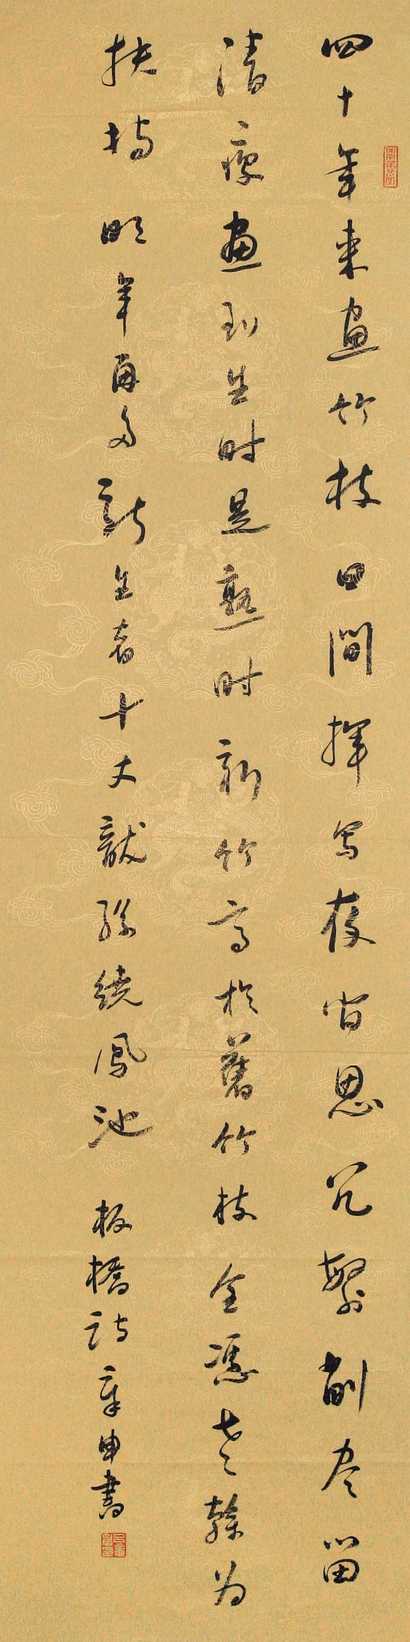 四十年来画竹枝日间挥写夜间思冗繁削尽留
清瘦画到生时是熟时新竹高於旧竹枝全凭老干为
扶持明年再有新生者十丈龙孙绕凤池
板桥诗 章申书